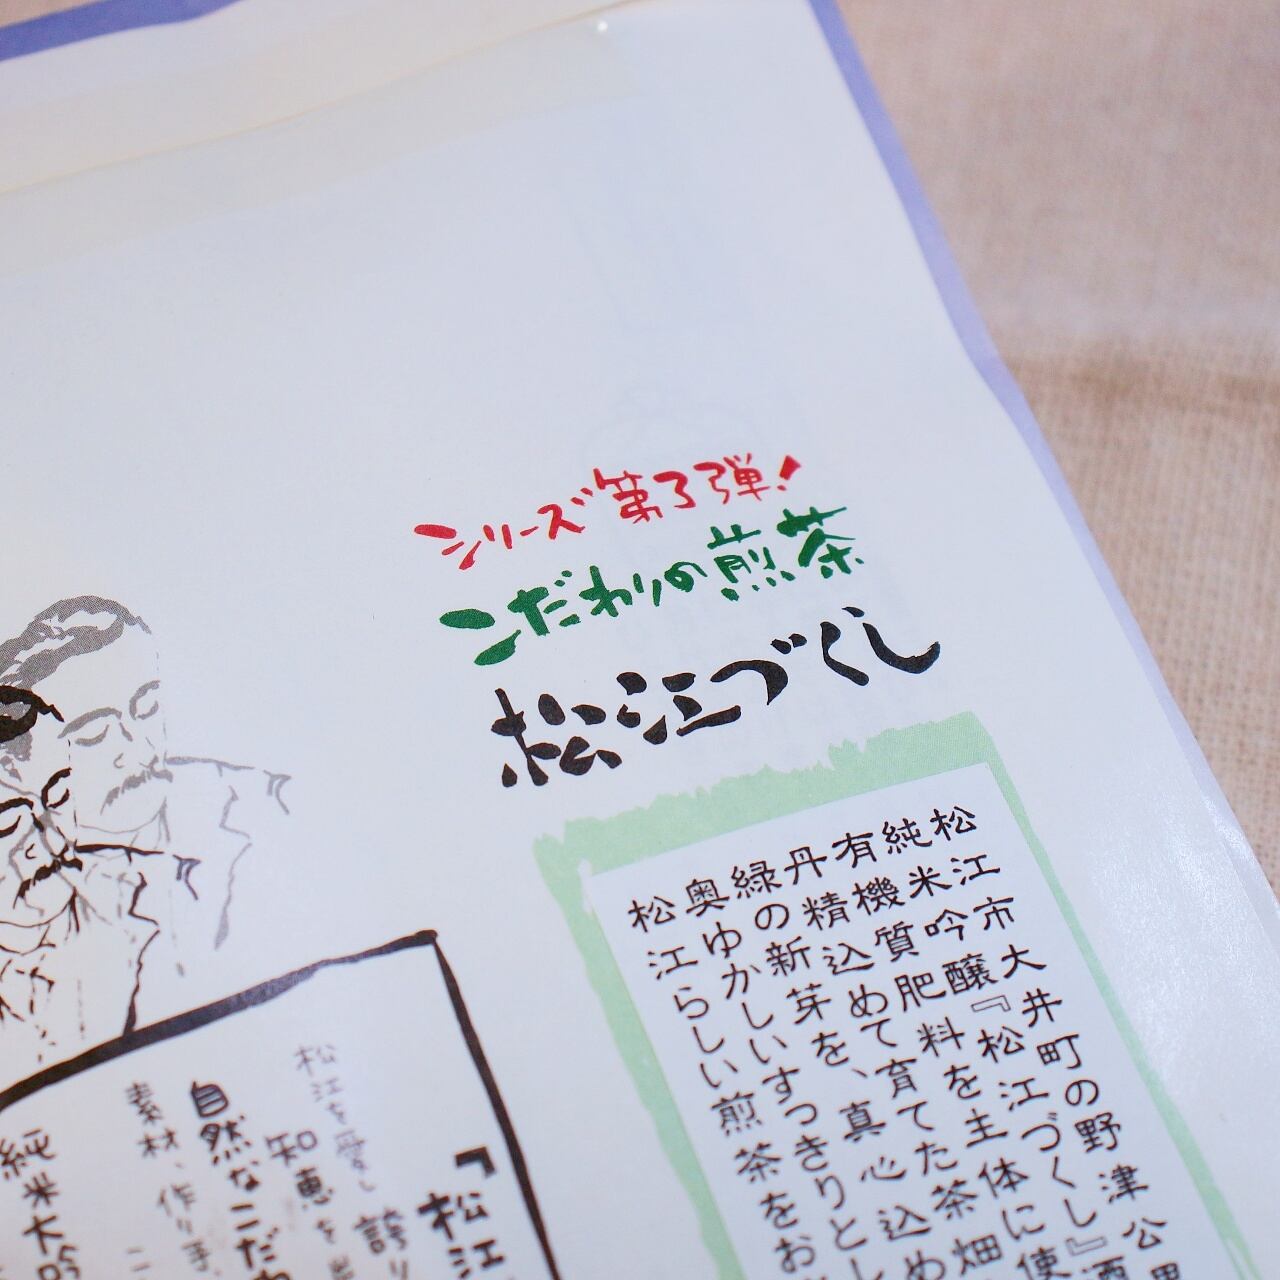 シリーズ第3弾!
こだわりの煎茶
松江づくし
松江市大井町の野津公
純米吟醸『松江づくし』酒
有機質肥料を主体に使
丹精込めて育てた茶畑
緑の新芽を、真心込め
奥ゆかしいすっきりとし
松江らしい煎茶をお
『松江
誇り
松江を愛し
知恵を
自然なこだわ
素材、作り手、
純米大吟